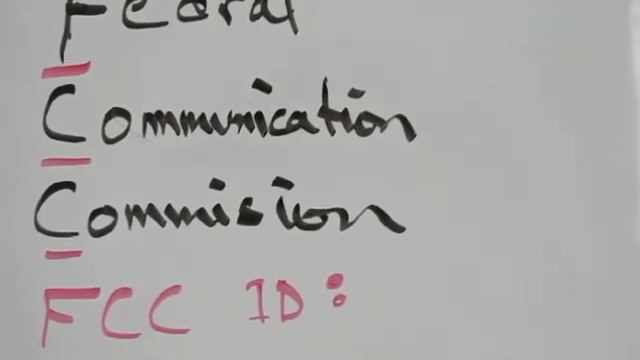 Fedral
Communication
Commision
FCC ID: